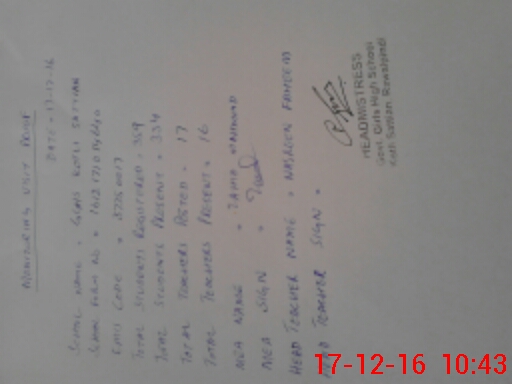 MONITORING VISIT PROOF
DATE = 17-12-16
SCHOOL NAME = GGHS KOTLI SATTIAN
SCHOOL FORM NO =
EMIS CODE =
TOTAL STUDENTS REGISTERED = 359
TOTAL STUDENTS PRESENT = 334
TOTAL TEACHERS POSTED = 17
TOTAL TEACHERS PRESENT = 16
MEA NAME =
MEA SIGN =
HEAD TEACHER NAME =
HEAD TEACHER SIGN =
HEADMISTRESS
Govt. Girls High School
Kotli Sattian Rawalpindi
17-12-16 10:43